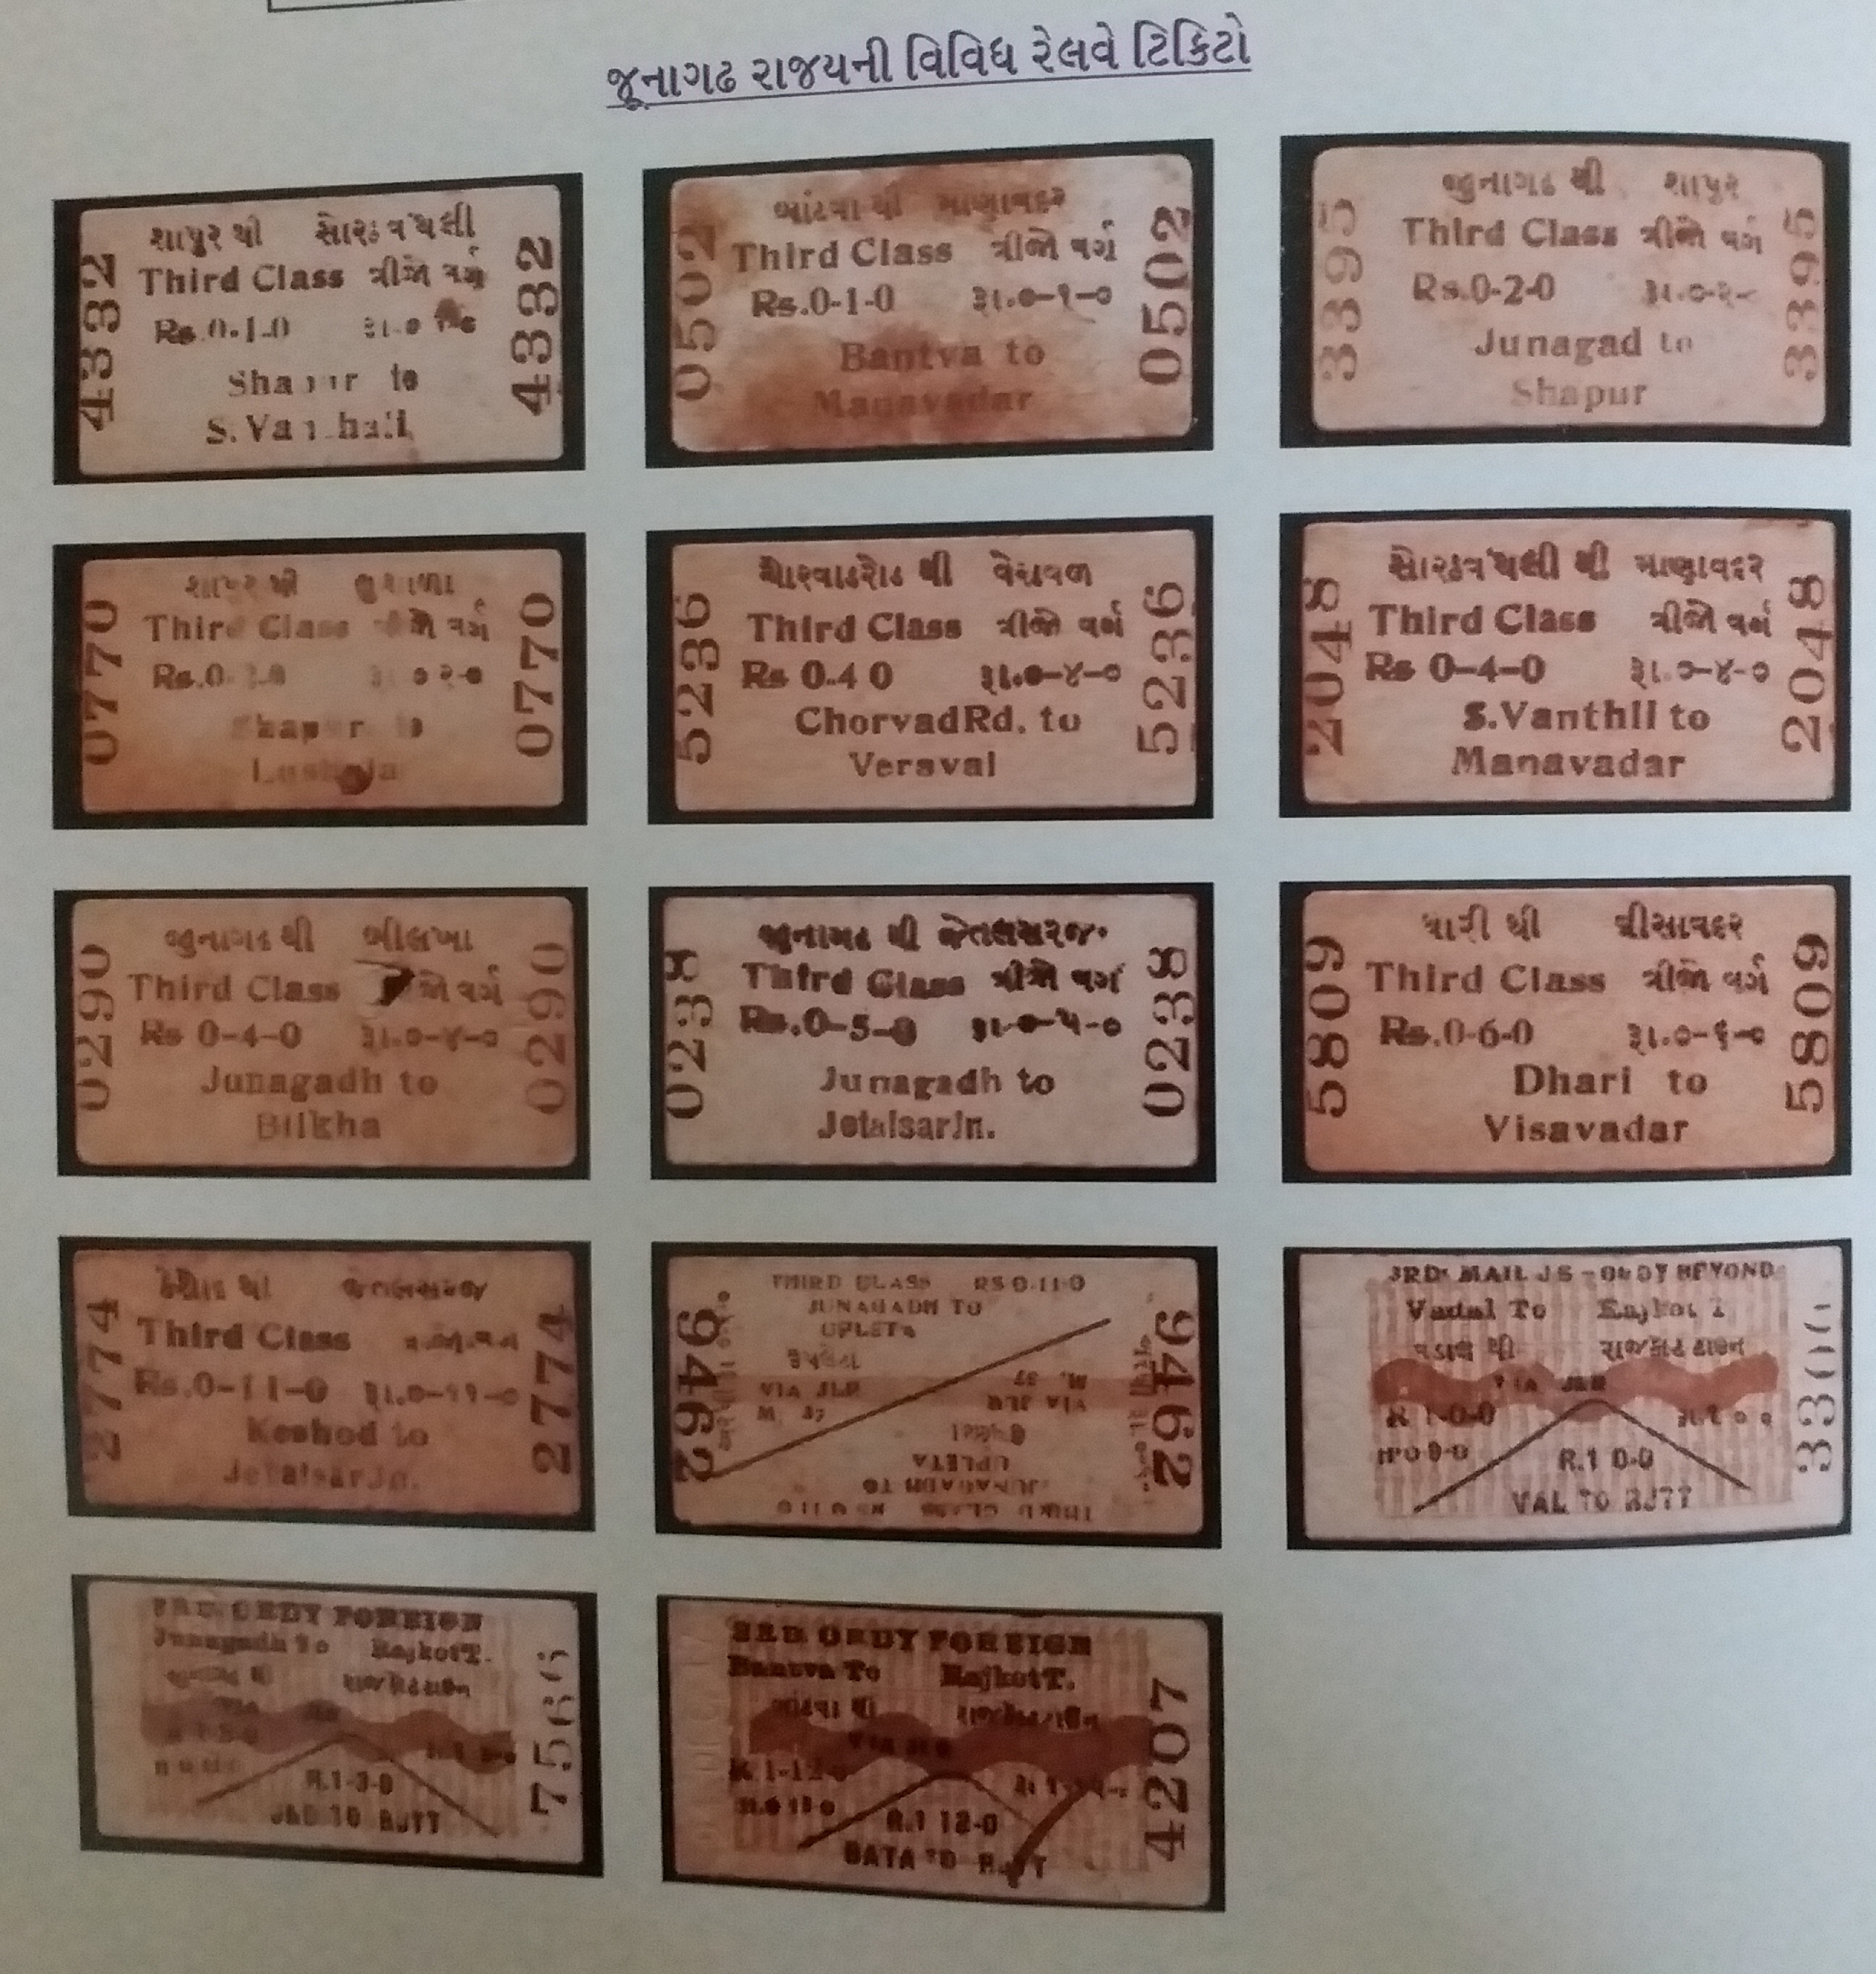 જૂનાગઢ રાજયની વિવિધ રેલવે ટિકિટો
4332
શાપુર થી સોરઠવંથલી
Third Class ત્રીજો વર્ગ
Rs.0-1-0 રૂા.૦
to
S.
4332
0502
બાંટવા થી માણાવદર
Third Class ત્રીજો વર્ગ
Rs.0-1-0 રૂા.૦-૧-૦
Bantva to
Manavadar
0502
3395
જુનાગઢ થી શાપુર
Third Class ત્રીજો વર્ગ
Rs.0-2-0 રૂા.૦-૨-
Junagad to
Shapur
3395
0770
શાપુર થી
Third Class વર્ગ
Rs.0 ૦-૨-૦
0770
5236
ચોરવાડરોડ થી વેરાવળ
Third Class ત્રીજો વર્ગ
Rs 0-4 0 રૂા.૦-૪-૦
Chorvad Rd. to
Veraval
5236
2048
સોરઠવંથલી થી માણાવદર
Third Class ત્રીજો વર્ગ
Rs 0-4-0 રૂા.૦-૪-૦
S.Vanthli to
Manavadar
2048
0290
જુનાગઢ થી બીલખા
Third Class વર્ગ
Rs 0-4-0 રૂા.૦-૪-૦
Junagadh to
Bilkha
0290
0238
જુનાગઢ થી જેતલસરજં.
Third Class ત્રીજો વર્ગ
Rs.0-5-0 રૂા.૦-૫-૦
Junagadh to
Jetalsar Jn.
0238
5809
ધારી થી વીસાવદર
Third Class ત્રીજો વર્ગ
Rs.0-6-0 રૂા.૦-૬-૦
Dhari to
Visavadar
5809
2774
Third Class
Rs.0-11-0 રૂા.૦-૧૧-૦
Keshod to
Jetalsar Jn.
2774
9462
THIRD CLASS RS 0-11-0
JUNAGADH TO
UPLETA
VIA JLR
M. 37
M. 37
VIA JLR
UPLETA
JUNAGADH TO
THIRD CLASS RS 0 11 0
9462
3RD MAIL BEYOND
Vadal To Rajkot T
વડાલ થી રાજકોટ ટાઉન
VIA JLR
R 1-0-0
R.1 0-0
VAL TO RJTT
3300
3RD ORDY FOREIGN
Junagadh To Rajkot T.
R.1-3-0
JND TO RJTT
3RD ORDY FOREIGN
Bantva To Rajkot T.
બાંટવા થી રાજકોટટાઉન
R 1-12-0
R.1 12-0
BATA TO RJTT
4207